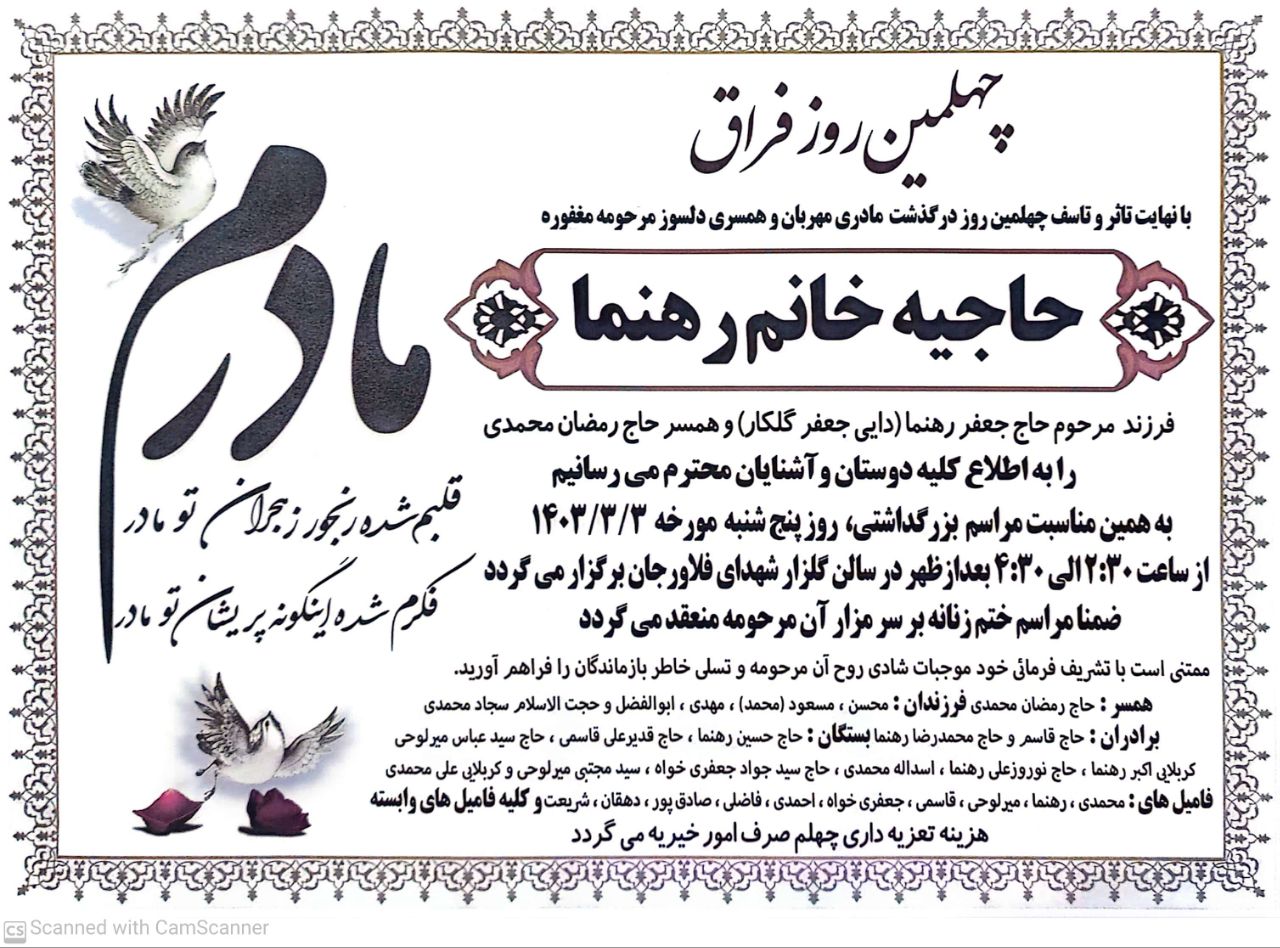 چهلمین روز فراق
با نهایت تاثر و تاسف چهلمین روز درگذشت مادری مهربان و همسری دلسوز مرحومه مغفوره
حاجیه خانم رهنما
فرزند مرحوم حاج جعفر رهنما (دایی جعفر گلکار) و همسر حاج رمضان محمدی
را به اطلاع کلیه دوستان و آشنایان محترم می رسانیم
به همین مناسبت مراسم بزرگداشتی، روز پنج شنبه مورخه ۱۴۰۳/۳/۳
از ساعت ۲:۳۰ الی ۴:۳۰ بعدازظهر در سالن گلزار شهدای فلاورجان برگزار می گردد
ضمنا مراسم ختم زنانه بر سر مزار آن مرحومه منعقد می گردد
ممتنی است با تشریف فرمائی خود موجبات شادی روح آن مرحومه و تسلی خاطر بازماندگان را فراهم آورید.
همسر : حاج رمضان محمدی فرزندان : محسن ، مسعود (محمد) ، مهدی ، ابوالفضل و حجت الاسلام سجاد محمدی
برادران : حاج قاسم و حاج محمدرضا رهنما بستگان : حاج حسین رهنما ، حاج قدیرعلی قاسمی ، حاج سید عباس میرلوحی
کربلایی اکبر رهنما ، حاج نوروزعلی رهنما ، اسداله محمدی ، حاج سید جواد جعفری خواه ، سید مجتبی میرلوحی و کربلایی علی محمدی
فامیل های : محمدی ، رهنما ، میرلوحی ، قاسمی ، جعفری خواه ، احمدی ، فاضلی ، صادق پور ، دهقان ، شریعت و کلیه فامیل های وابسته
هزینه تعزیه داری چهلم صرف امور خیریه می گردد
مادرم
قلبم شده رنجور ز هجران تو مادر
فکرم شده اینگونه پریشان تو مادر
CS Scanned with CamScanner